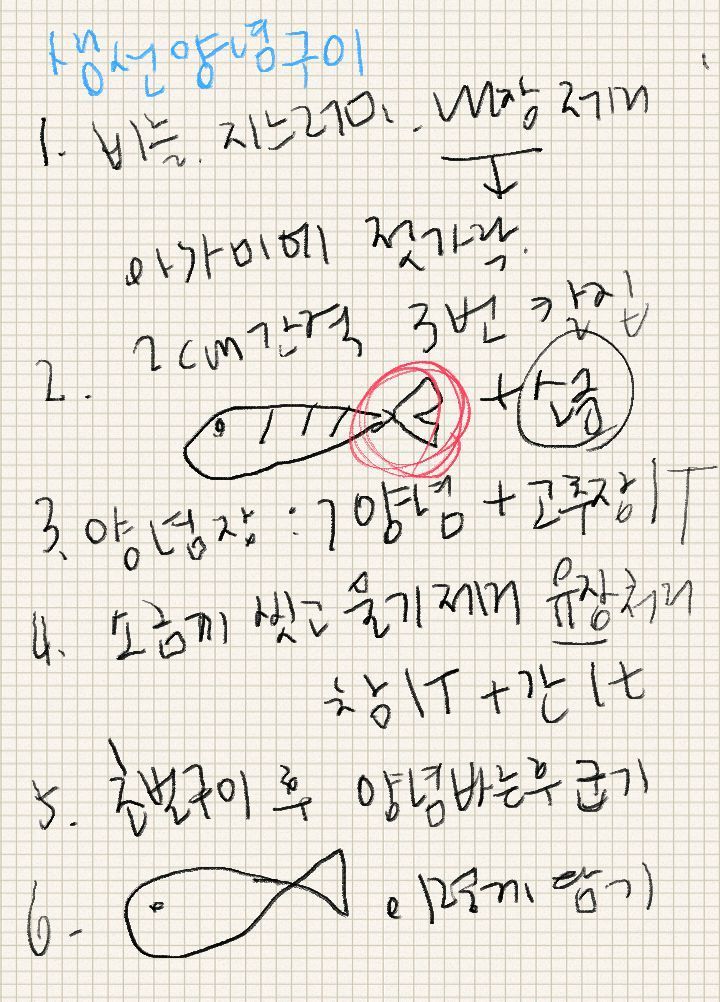 생선양념구이
1. 비늘. 지느러미. 내장 제거
아가미에 젓가락.
2. 2cm간격 3번 칼집
+ 소금
3. 양념장 : 7양념 + 고추장 1T
4. 소금기 씻고 물기제거 유장처리
참 1T + 간 1t
5. 초벌구이 후 양념바른후 굽기
6. 이렇게 담기